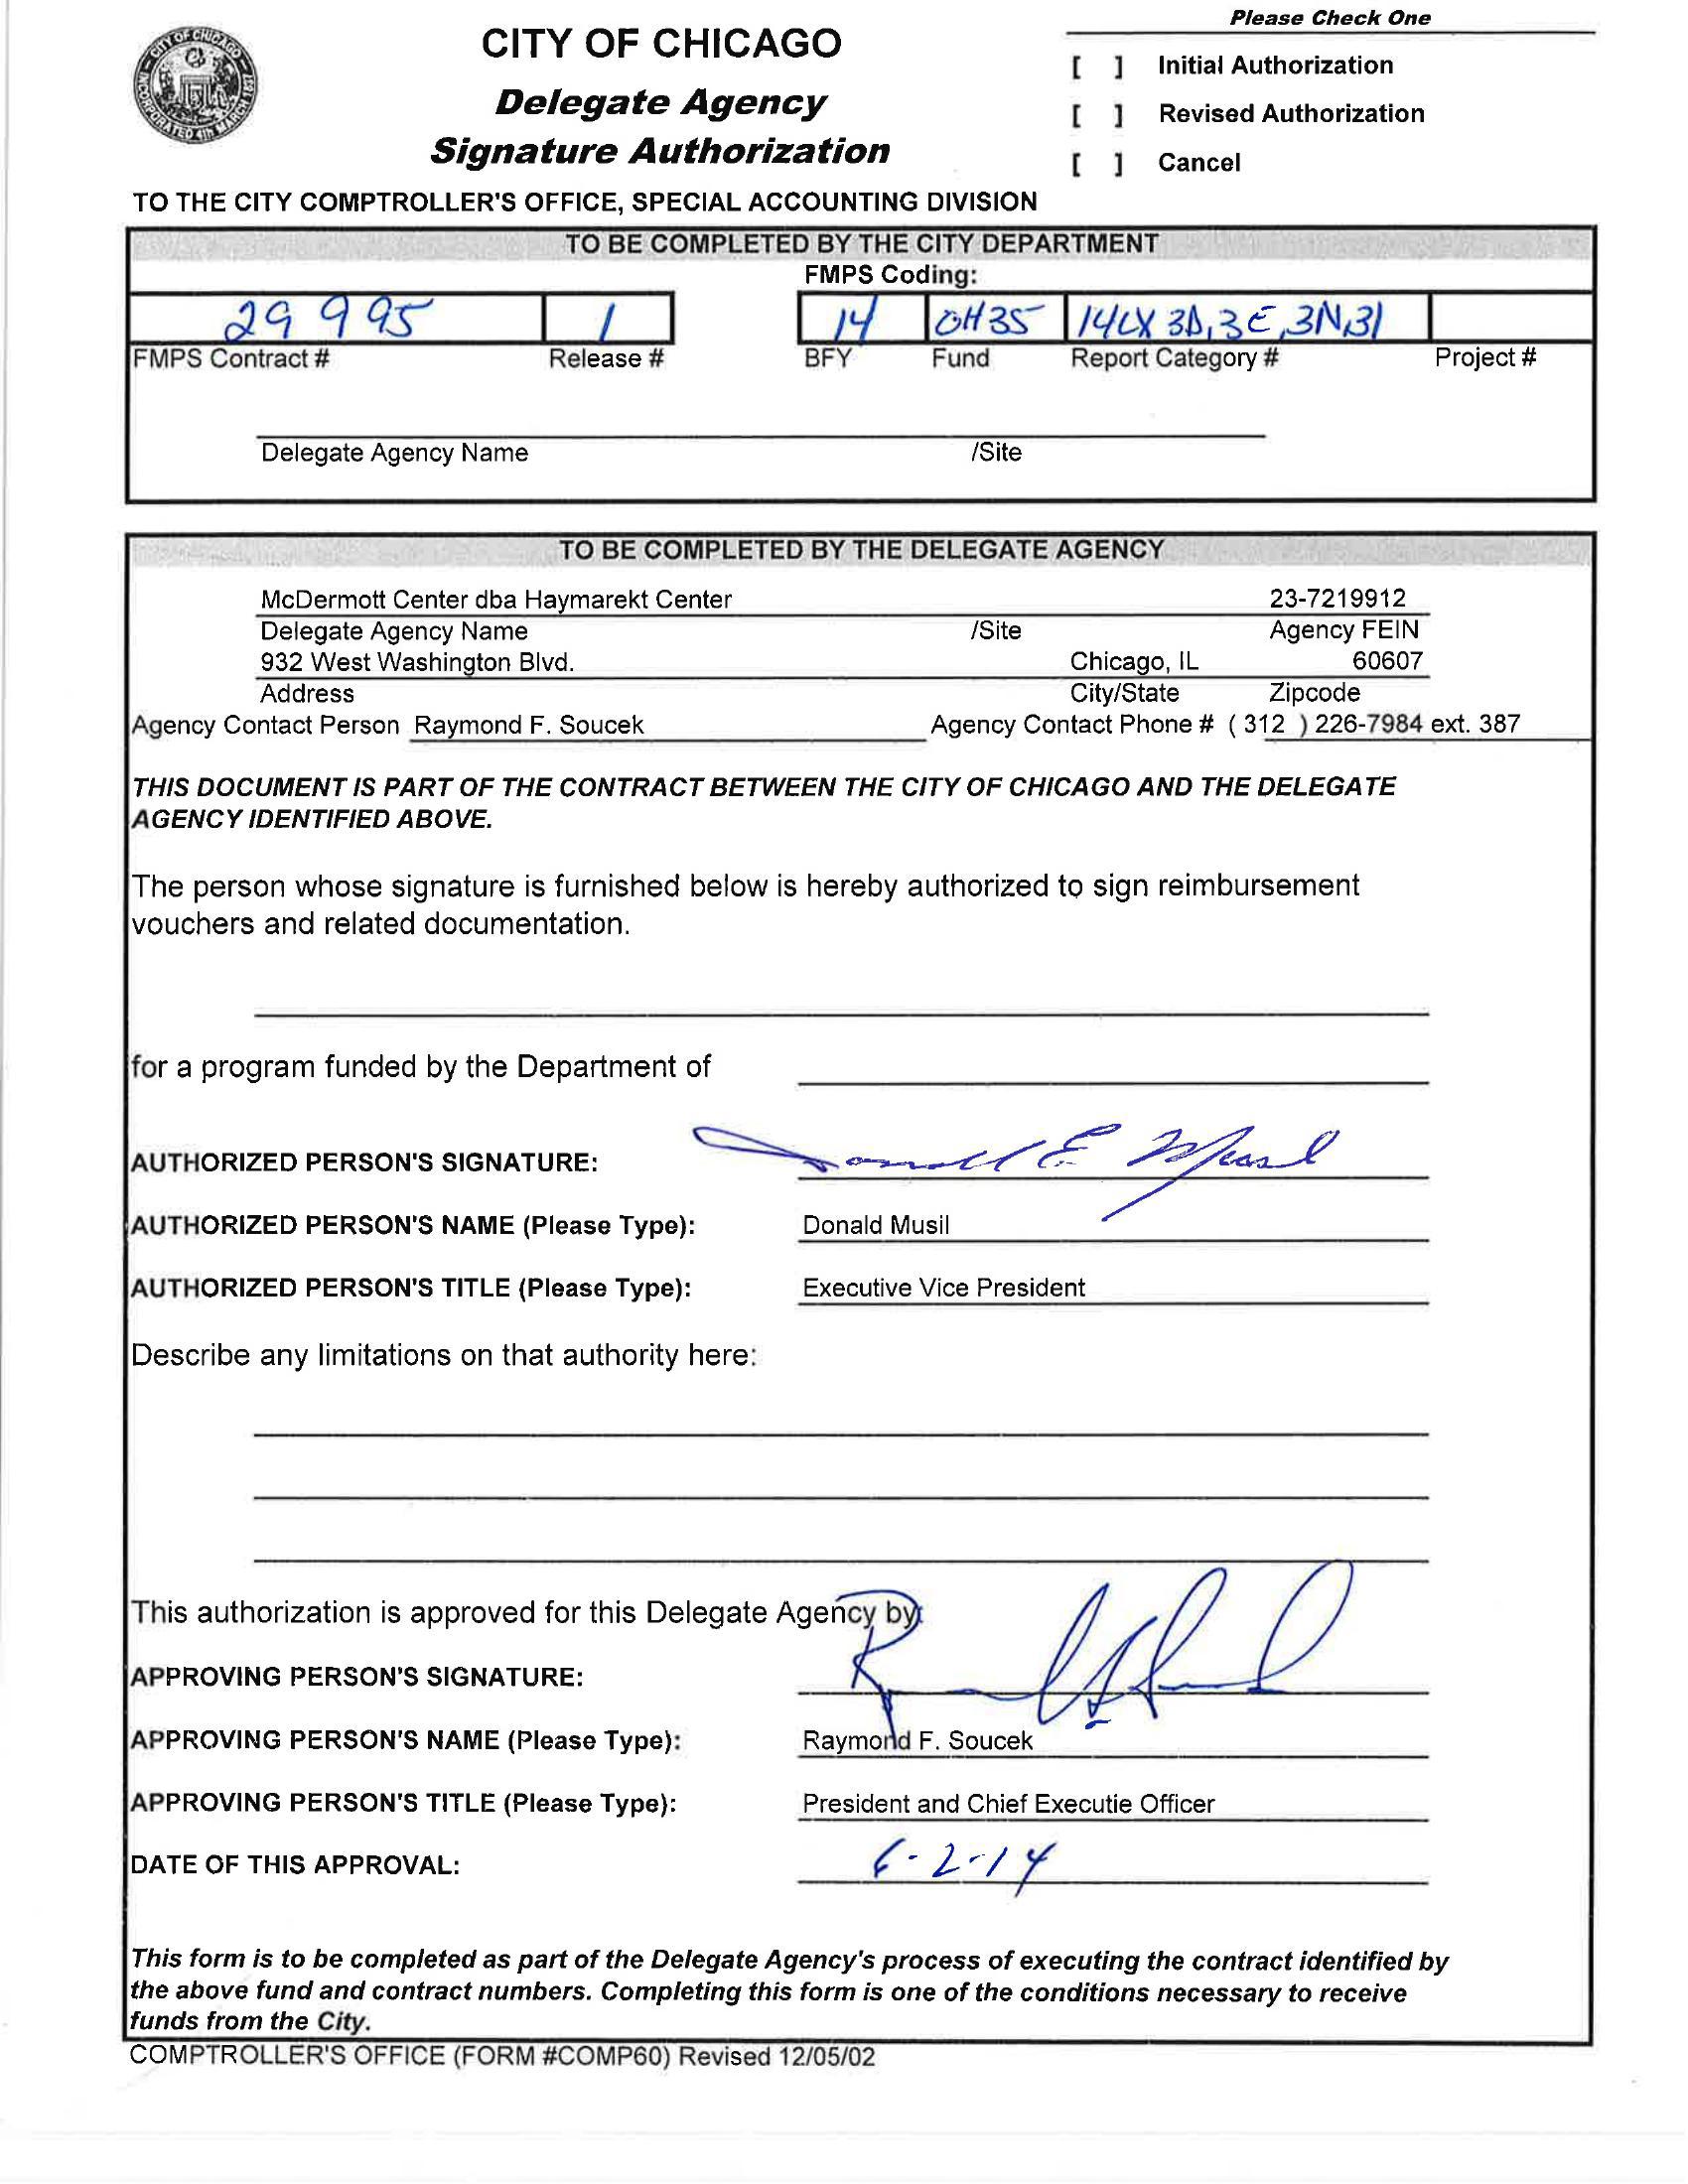 Please Check One
CITY OF CHICAGO
Delegate Agency
Signature Authorization
[ ] Initial Authorization
[ ] Revised Authorization
[ ] Cancel
TO THE CITY COMPTROLLER'S OFFICE, SPECIAL ACCOUNTING DIVISION
TO BE COMPLETED BY THE CITY DEPARTMENT
FMPS Coding:
29995 1 14 0H35 14LX 3D, 3E, 3N, 31
FMPS Contract # Release # BFY Fund Report Category # Project #
Delegate Agency Name /Site
TO BE COMPLETED BY THE DELEGATE AGENCY
McDermott Center dba Haymarekt Center 23-7219912
Delegate Agency Name /Site Agency FEIN
932 West Washington Blvd. Chicago, IL 60607
Address City/State Zipcode
Agency Contact Person Raymond F. Soucek Agency Contact Phone # ( 312 ) 226-7984 ext. 387
THIS DOCUMENT IS PART OF THE CONTRACT BETWEEN THE CITY OF CHICAGO AND THE DELEGATE
AGENCY IDENTIFIED ABOVE.
The person whose signature is furnished below is hereby authorized to sign reimbursement
vouchers and related documentation.
for a program funded by the Department of
AUTHORIZED PERSON'S SIGNATURE: Donald E Musil
AUTHORIZED PERSON'S NAME (Please Type): Donald Musil
AUTHORIZED PERSON'S TITLE (Please Type): Executive Vice President
Describe any limitations on that authority here:
This authorization is approved for this Delegate Agency by:
APPROVING PERSON'S SIGNATURE:
APPROVING PERSON'S NAME (Please Type): Raymond F. Soucek
APPROVING PERSON'S TITLE (Please Type): President and Chief Executie Officer
DATE OF THIS APPROVAL: 6-2-14
This form is to be completed as part of the Delegate Agency's process of executing the contract identified by
the above fund and contract numbers. Completing this form is one of the conditions necessary to receive
funds from the City.
COMPTROLLER'S OFFICE (FORM #COMP60) Revised 12/05/02